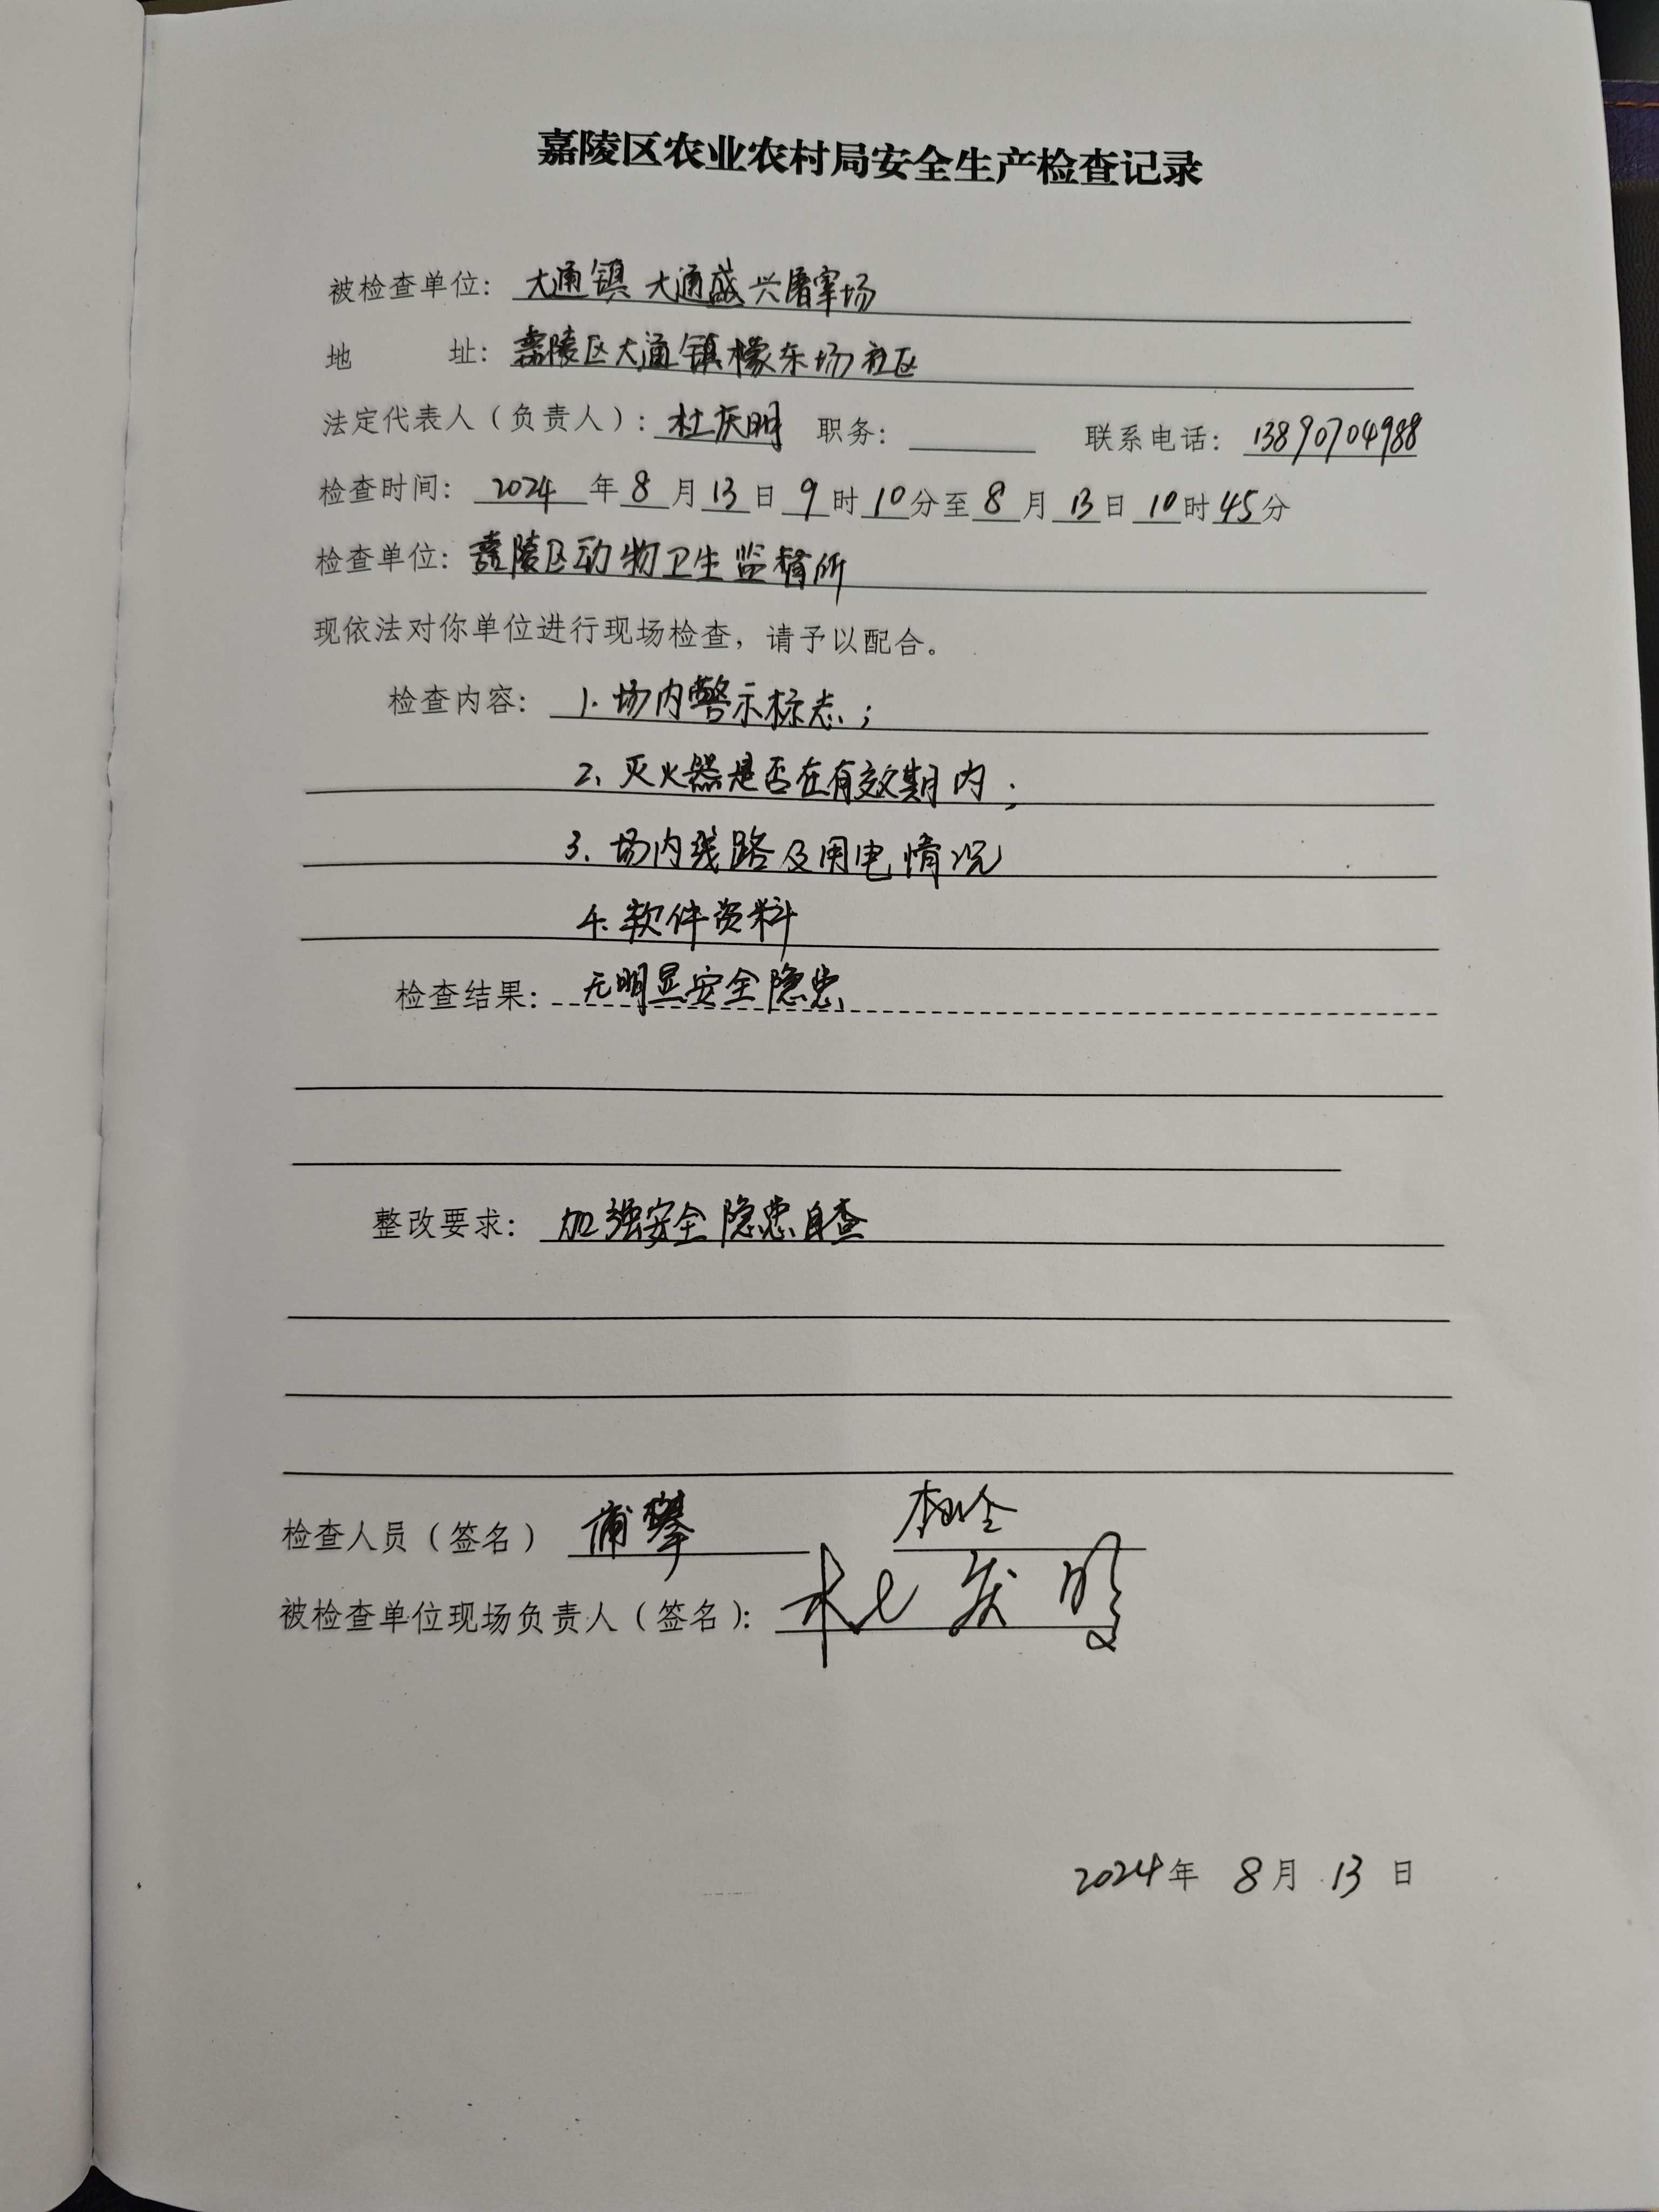 嘉陵区农业农村局安全生产检查记录
被检查单位：大通镇大通盛兴屠宰场
地 址：嘉陵区大通镇檬东场社区
法定代表人（负责人）：杜庆明 职务： 联系电话：13890704988
检查时间：2024年8月13日9时10分至8月13日10时45分
检查单位：嘉陵区动物卫生监督所
现依法对你单位进行现场检查，请予以配合。
检查内容：1.场内警示标志；
2.灭火器是否在有效期内；
3.场内线路及用电情况
4.软件资料
检查结果：无明显安全隐患
整改要求：加强安全隐患自查
检查人员（签名）蒲攀
被检查单位现场负责人（签名）：杜庆明
2024年 8月 13 日